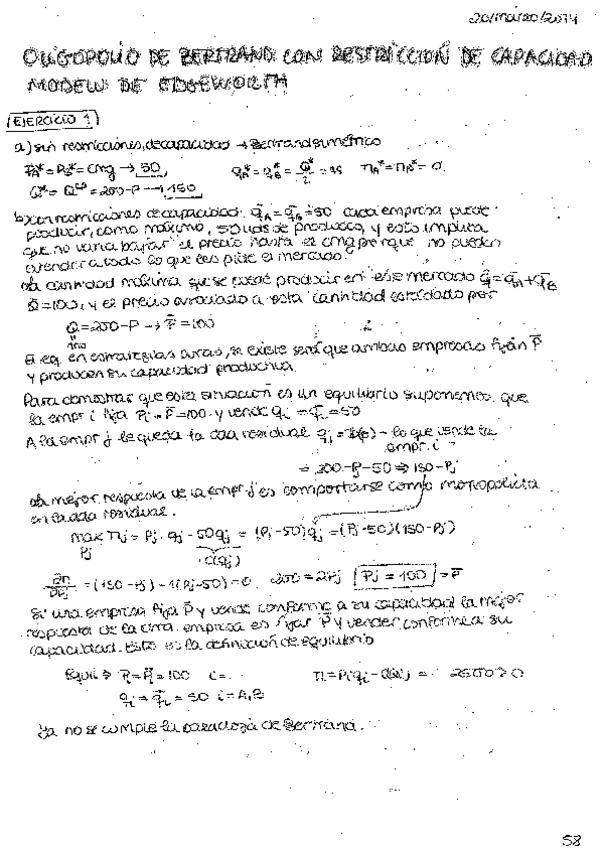 20/marzo/2014
OLIGOPOLIO DE BERTRAND CON RESTRICCION DE CAPACIDAD
MODELO DE EDGEWORTH
EJERCICIO 1
a) sin restricciones de capacidad → Bertrand simétrico
PA* = PB* = CMg → 50 qA* = qB* = Q*/2 = 75 πA* = πB* = 0
Q* = 200 - P → 150
b) con restricciones de capacidad. q̄A = q̄B = 50 cada empresa puede
producir, como máximo, 50 uds de producto, y esto implica
que no van a bajar el precio hasta el cmg porque no pueden
atender a todo lo que les pide el mercado.
La cantidad máxima que se puede producir en este mercado Q̄ = q̄A + q̄B
Q̄ = 100, y el precio asociado a esta cantidad está dado por
Q = 200 - P → P̄ = 100
100
El eq. en estrategias puras, si existe será que ambas empresas fijan P̄
y producen su capacidad productiva.
Para demostrar que esta situación es un equilibrio suponemos que
la empr i fija Pi = P̄ = 100 y vende qi = q̄i = 50
A la empr j le queda la dda residual qj = - lo que vende la
empr. i
= 200 - Pj - 50 ⇒ 150 - Pj
La mejor respuesta de la empr j es comportarse como monopolista
en la dda residual.
max πj = Pj · qj - 50qj = (Pj - 50)qj = (Pj - 50)(150 - Pj)
Pj
C(qj)
= (150 - Pj) - 1(Pj - 50) = 0 200 = 2Pj Pj = 100 = P̄
Si una empresa fija P̄ y vende conforme a su capacidad la mejor
respuesta de la otra empresa es fijar P̄ y vender conforme a su
capacidad. Esto es la definición de equilibrio
Equil ⇒ Pi = P̄ = 100 i = π = Piqi - = 2500 > 0
qi = q̄i = 50 i = A, B
Ya no se cumple la paradoja de Bertrand.
58